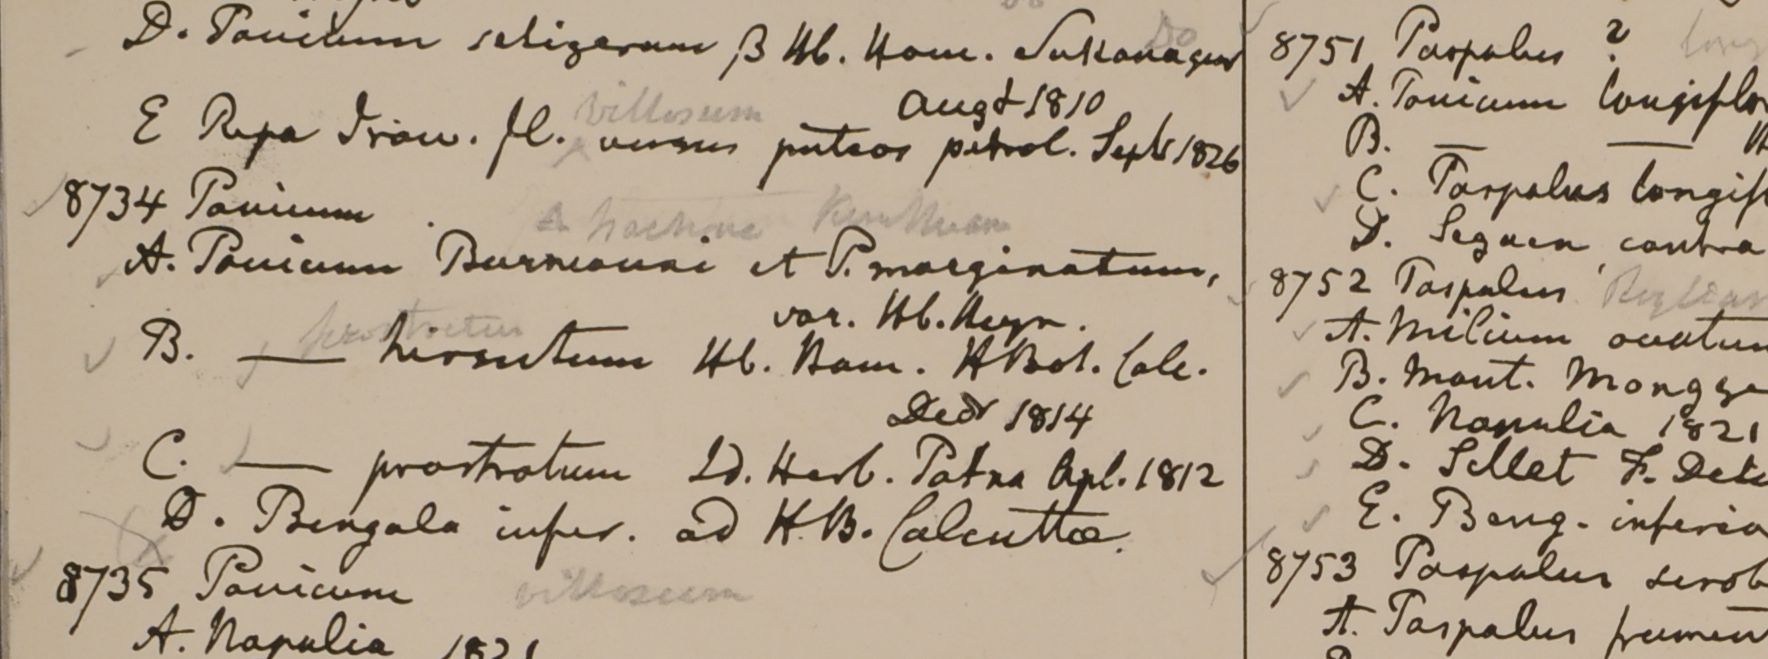 D. Panicum setigerum β Hb. Ham. Do
Augt 1810
villosum
E Ripa Iraw. fl. versus puteos petrol. Septr 1826
8734 Panicum
Brachiaria Kunthiana
A. Panicum Burmanni et P. marginatum,
var. Hb. Heyn.
prostratum
B. — hirsutum Hb. Ham. H Bot. Calc.
Decr 1814
C. — prostratum Id. Herb. Patna Apl. 1812
D. Bengala infer. ad H. B. Calcuttae.
8735 Panicum villosum
A. Napalia 1821
8751 Paspalus ? long
A. Panicum longiflo
B. — —
C. Paspalus longif
D. Segaen contra
8752 Paspalus
A. Milium ovatum
B. Mont. Mongge
C. Napalia 1821
D. Sillet F. Des
E. Beng. inferio
8753 Paspalus scrob
A. Paspalus frumen